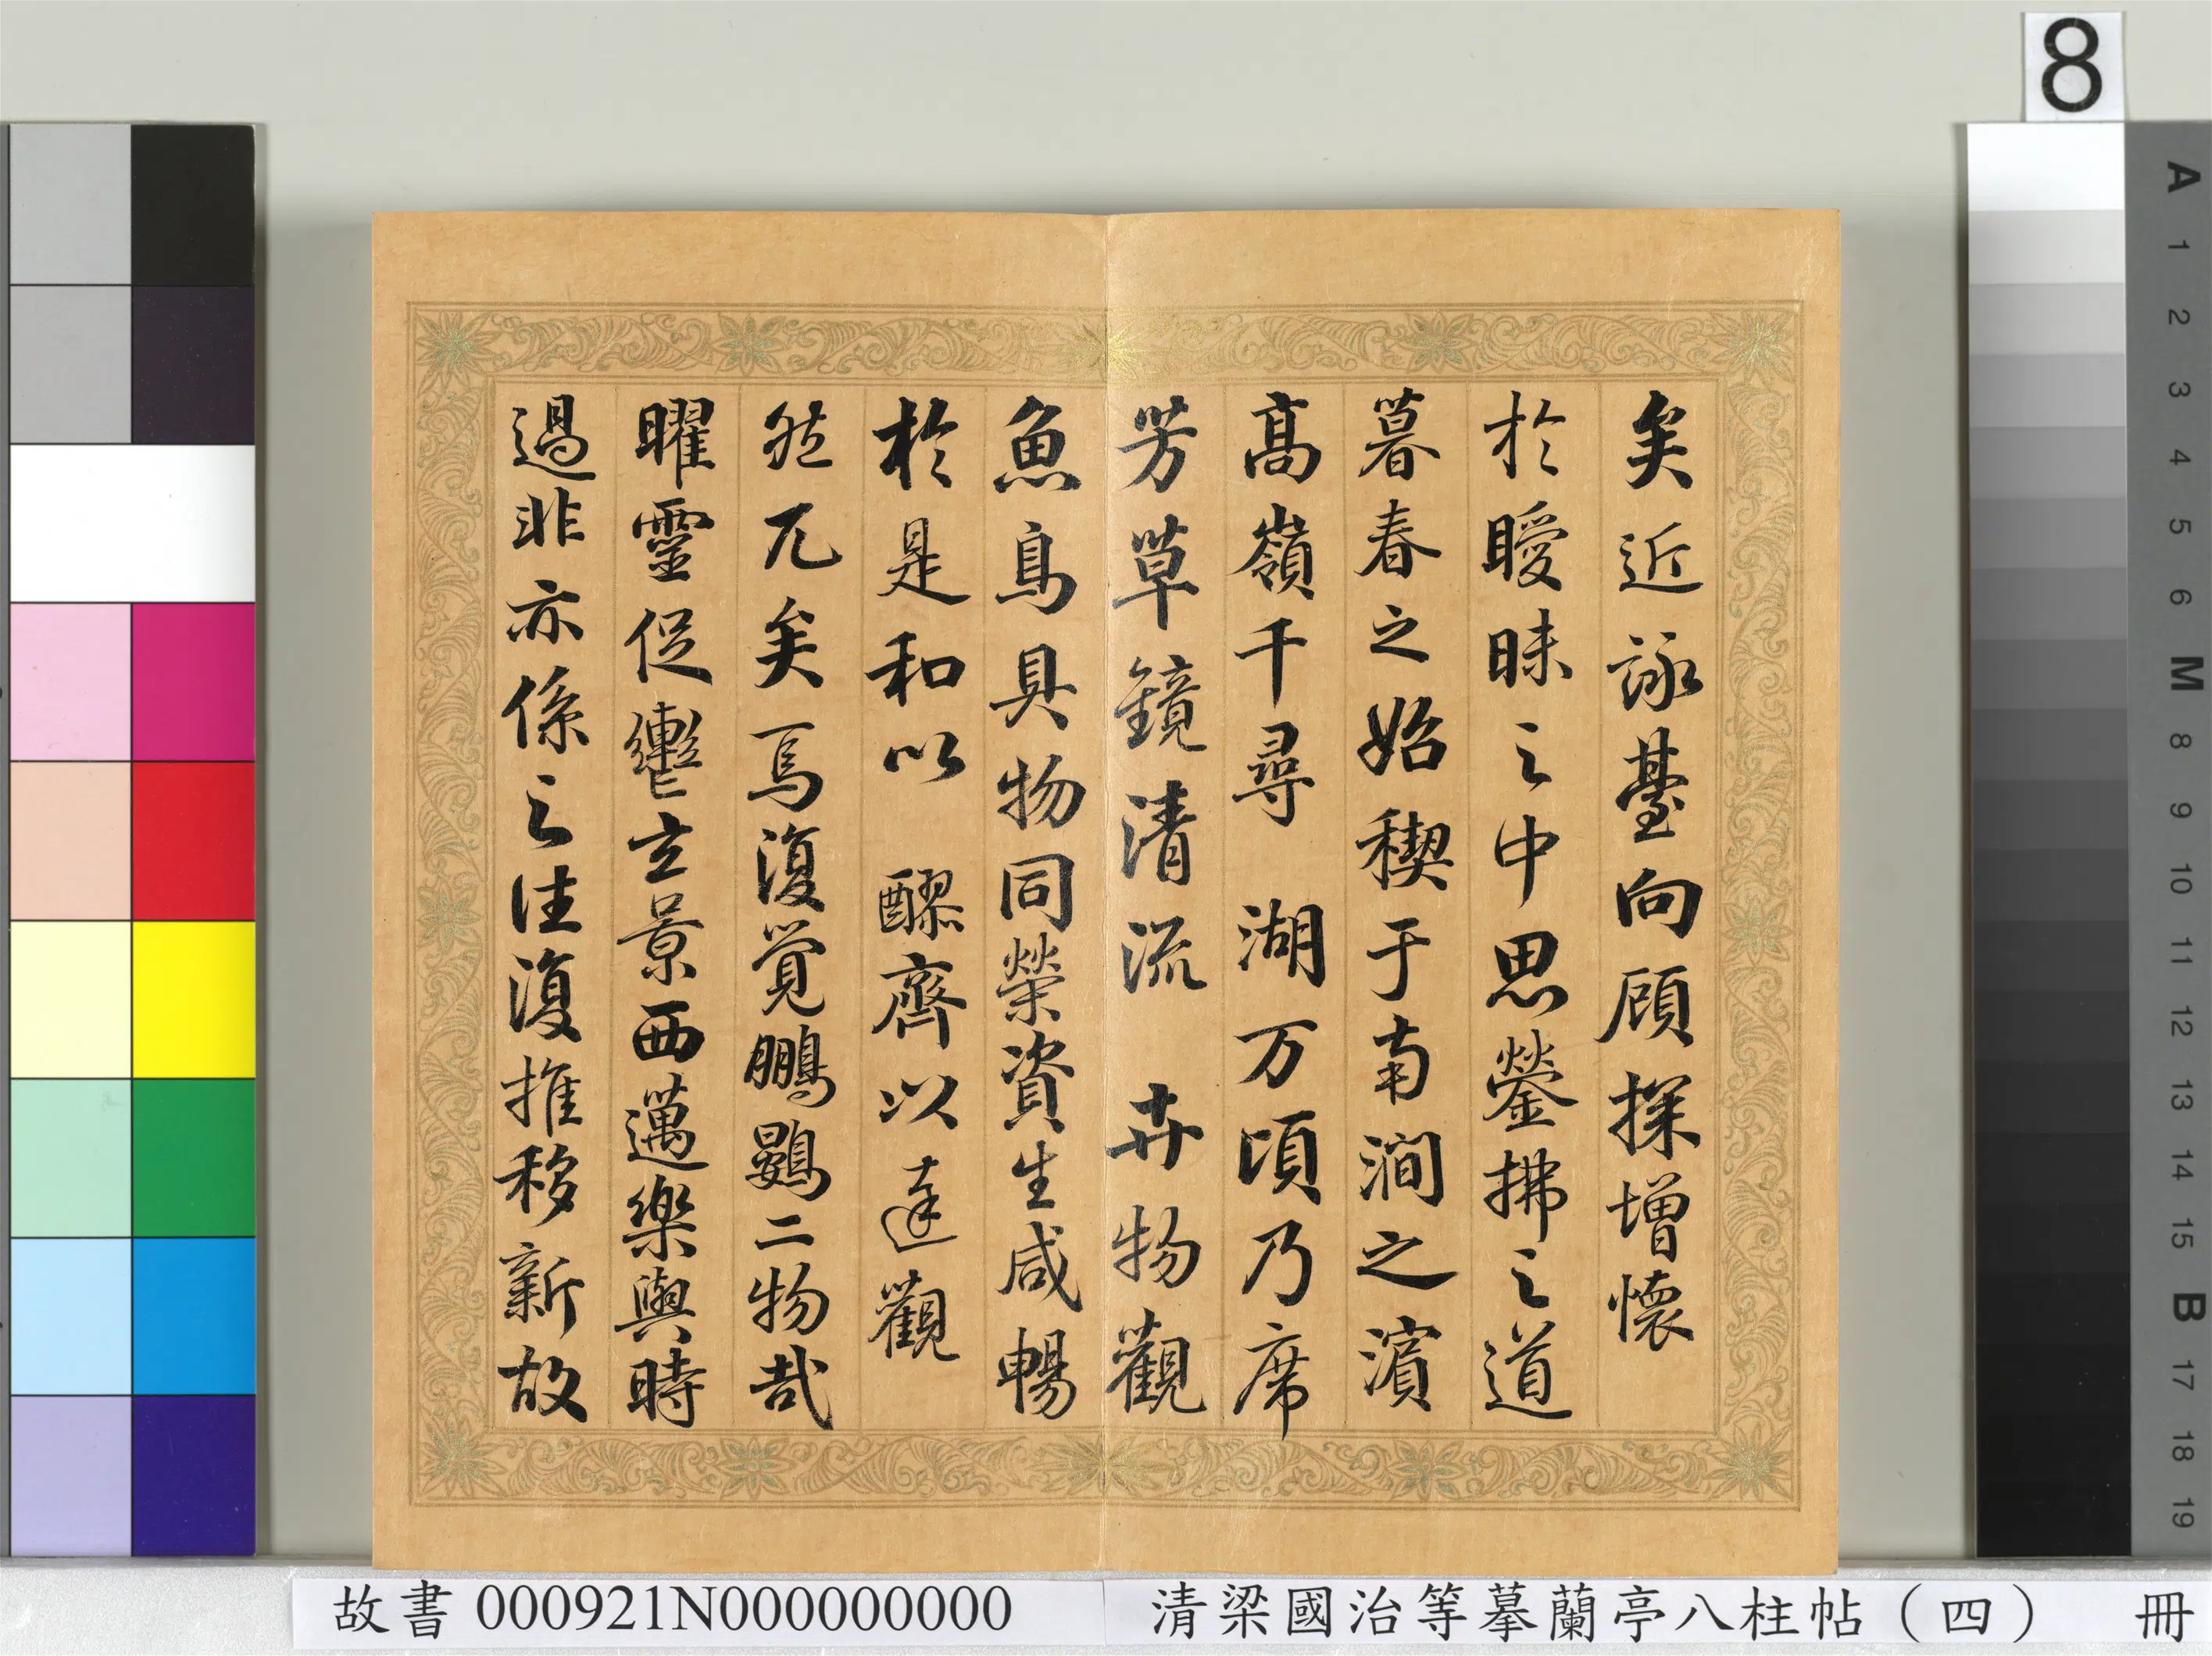 8
矣近詠臺向顧探增懷
於曖昧之中思鎣拂之道
暮春之始禊于南澗之濱
高嶺千尋湖万頃乃席
芳草鏡清流卉物觀
魚鳥具物同榮資生咸暢
於是和以醪齊以達觀
然兀矣焉復覺鵬鷃二物哉
曜靈促轡玄景西邁樂與時
過悲亦係之往復推移新故
A 1 2 3 4 5 6 M 8 9 10 11 12 13 14 15 B 17 18 19
故書 000921N000000000
清梁國治等摹蘭亭八柱帖（四） 冊